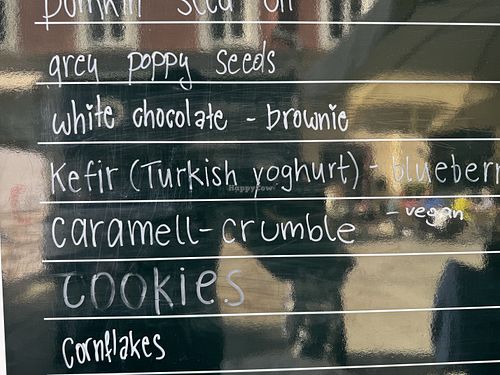 pumkin seed oil
grey poppy seeds
white chocolate - brownie
Kefir (Turkish yoghurt) - blueberr
- vegan
caramell-crumble
cookies
Cornflakes
HappyCow